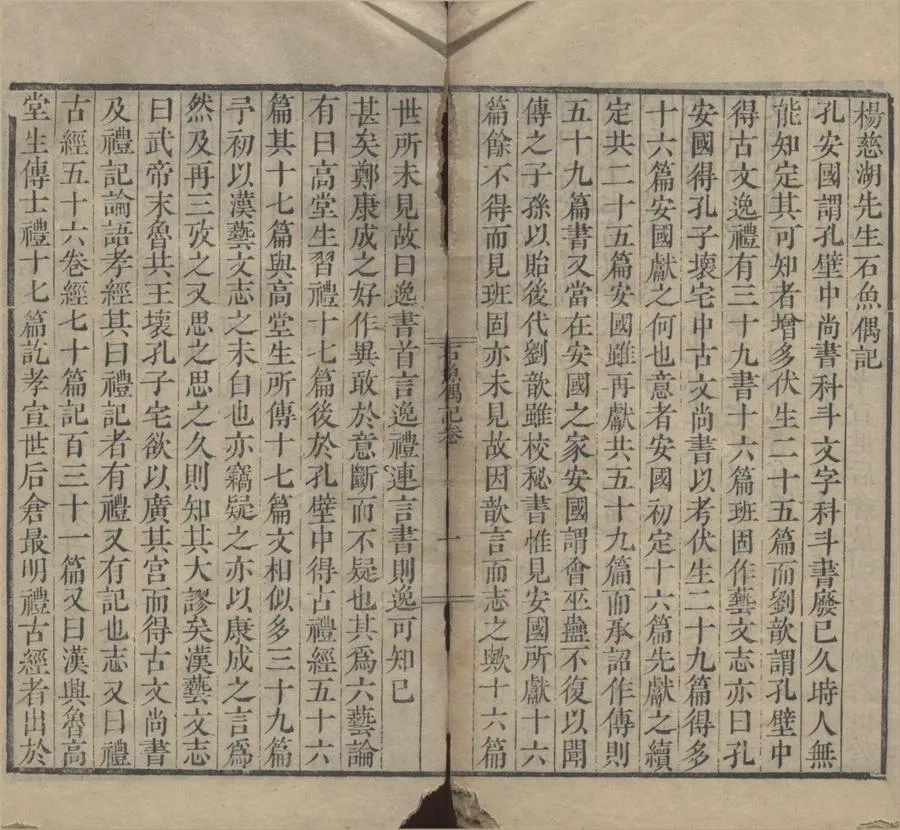 楊慈湖先生石魚偶記
孔安國謂孔壁中尚書科斗文字科斗書廢已久時人無
能知定其可知者增多伏生二十五篇而劉歆謂孔壁中
得古文逸禮有三十九書十六篇班固作藝文志亦曰孔
安國得孔子壞宅中古文尚書以考伏生二十九篇得多
十六篇安國獻之何也意者安國初定十六篇先獻之續
定共二十五篇安國雖再獻共五十九篇而承詔作傳則
五十九篇書又當在安國之家安國謂會巫蠱不復以聞
傳之子孫以貽後代劉歆雖校秘書惟見安國所獻十六
篇餘不得而見班固亦未見故因歆言而志之歟十六篇
石魚偶記卷
一
世所未見故曰逸書首言逸禮連言書則逸可知已
甚矣鄭康成之好作異敢於意斷而不疑也其為六藝論
有曰高堂生習禮十七篇後於孔壁中得古禮經五十六
篇其十七篇與高堂生所傳十七篇文相似多三十九篇
予初以漢藝文志之未白也亦竊疑之亦以康成之言為
然及再三攷之又思之思之久則知其大謬矣漢藝文志
曰武帝末魯共王壞孔子宅欲以廣其宮而得古文尚書
及禮記論語孝經其曰禮記者有禮又有記也志又曰禮
古經五十六卷經七十篇記百三十一篇又曰漢興魯高
堂生傳士禮十七篇訖孝宣世后倉最明禮古經者出於